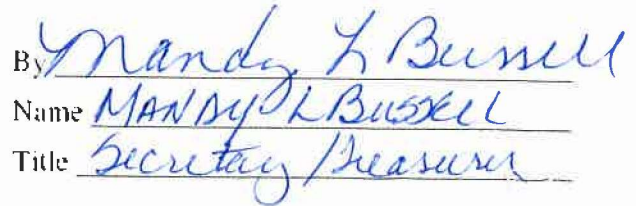 By Mandy L Bussell
Name MANDY L BUSSELL
Title Secretary / Treasurer